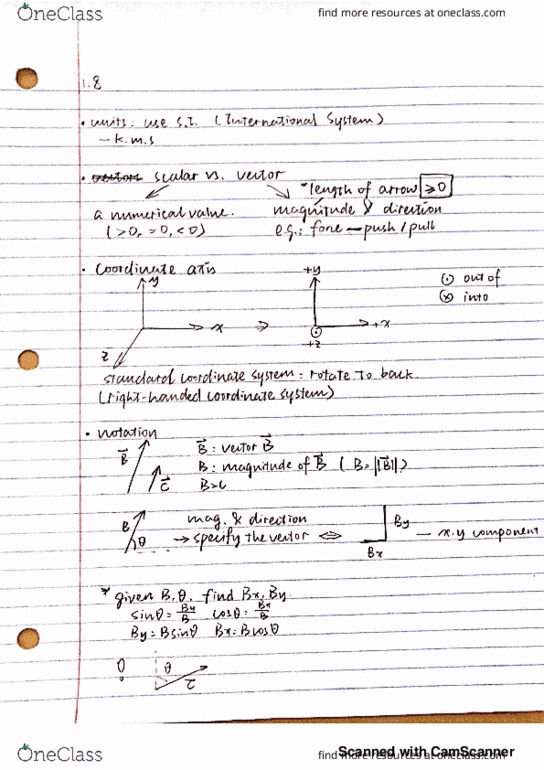 OneClass
find more resources at oneclass.com
1.8
• units: use S.I. (International System)
– k.m.s
• vectors scalar vs. vector
*length of arrow ≥0
a numerical value. magnitude & direction
(>0, =0, <0) e.g.: force — push/pull
• coordinate axis
y
+y
⊙ out of
⊗ into
x
⇒
+x
z
+z
standard coordinate system: rotate to back.
(right-handed coordinate system)
• notation
B⃗ : vector B⃗
B⃗
B: magnitude of B⃗ ( B= ||B⃗|| )
C⃗
B>C
mag. & direction
B
By
θ
→ specify the vector ⇔
— x.y component
Bx
* given B, θ. find Bx, By
sinθ = By/B cosθ = Bx/B
By = Bsinθ Bx = Bcosθ
θ
C⃗
OneClass
find more resources at oneclass.com
Scanned with CamScanner